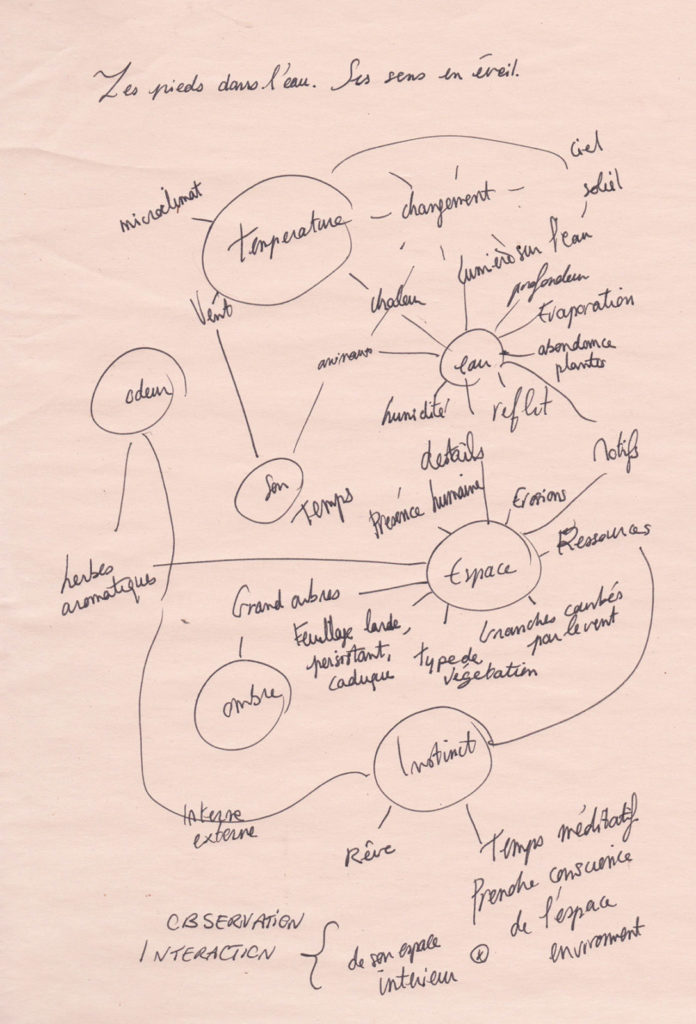 Les pieds dans l'eau. Ses sens en éveil.
ciel
microclimat
changement
soleil
Température
lumière sur l'eau
profondeur
chaleur
Vent
Evaporation
abondance
plantes
animaux
eau
odeur
humidité
reflet
details
Motifs
Son
Temps
Présence humaine
Erosions
Ressources
herbes
aromatiques
Espace
Grand arbres
Feuillage
persistant,
caduque
type de
végétation
branches courbés
par le vent
ombre
Instinct
Interne
externe
Rêve
Temps méditatif
Prendre conscience
de l'espace
environment
OBSERVATION
INTERACTION
de son espace
intérieur